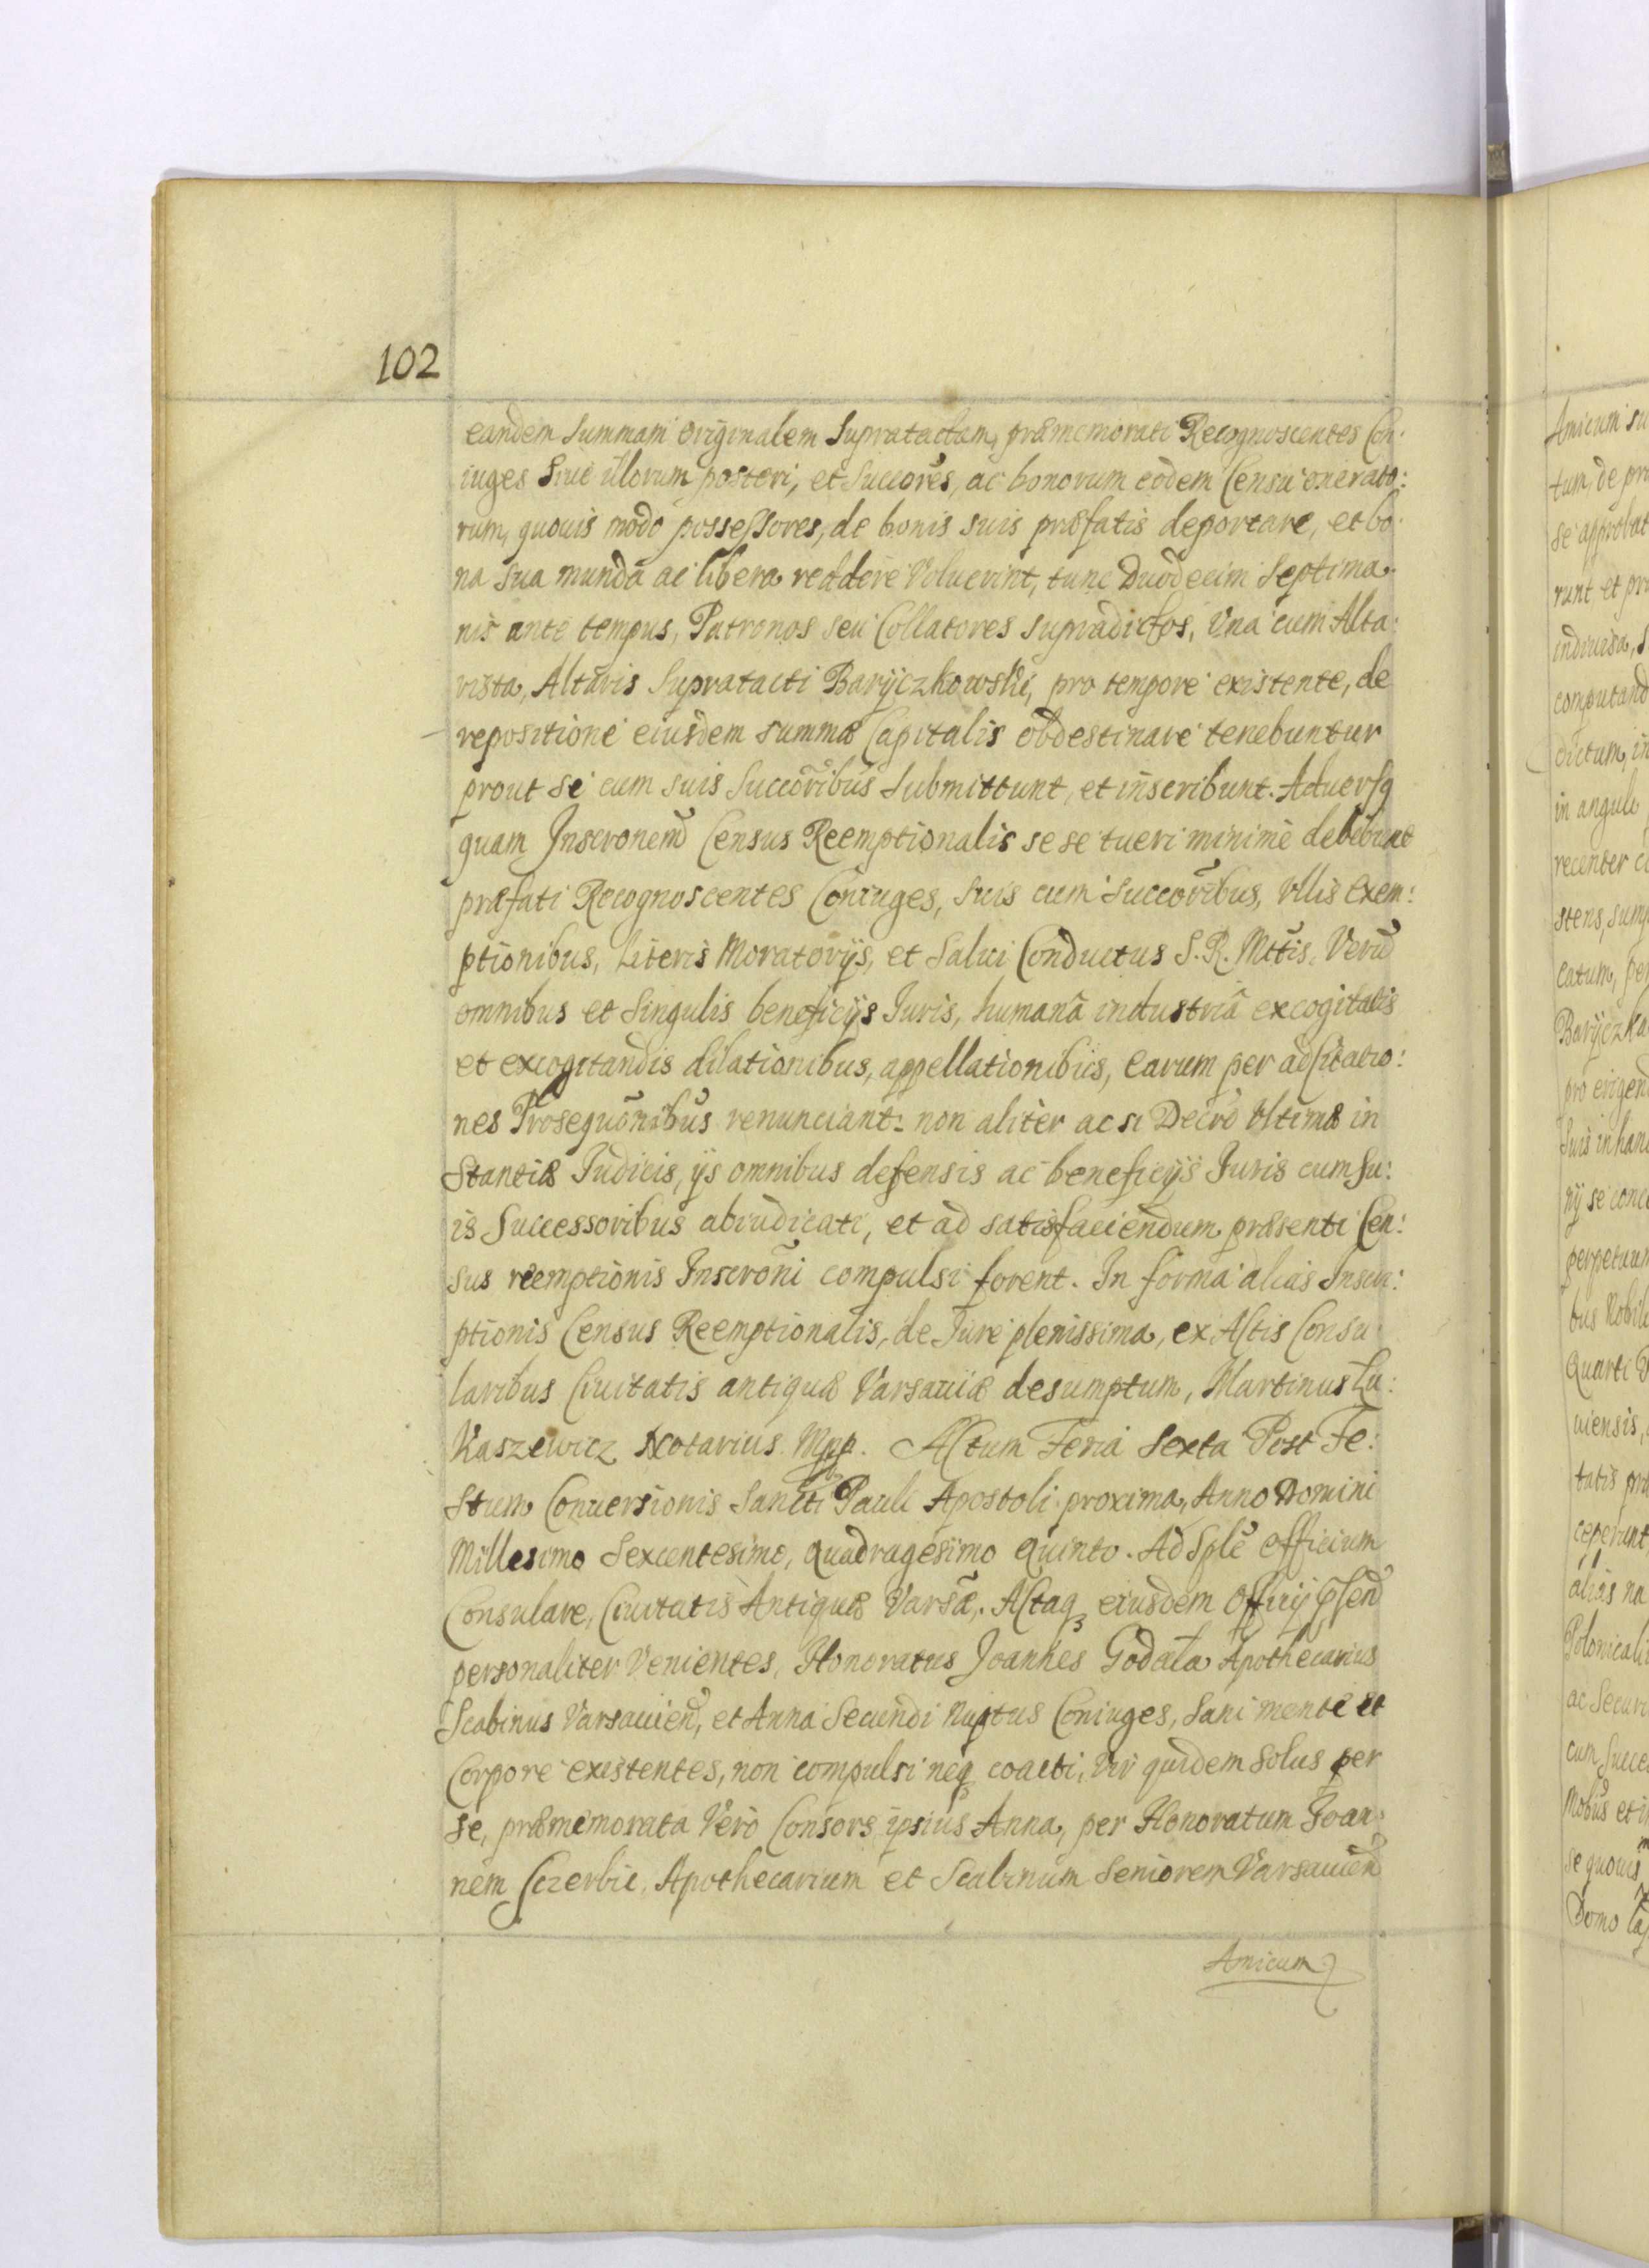 102
eandem summam originalem supratactam, præmemorati Recognoscentes Con:
iuges siue illorum posteri, et Succores, ac bonorum eodem Censu onerato:
rum, quouis modo possessores, de bonis suis præfatis deportare, et bo:
na sua munda ac libera reddere Voluerint, tunc Duodecim Septima:
nis ante tempus, Patronos seu Collatores supradictos, Vna cum Alta:
rista, Altaris Supratacti Baryczkowski, pro tempore existente, de
repositione eiusdem summæ Capitalis obdestinare tenebuntur
prout se cum suis Succoribus submittunt, et inscribunt. Aduersq
quam Inscronem Census Reemptionalis se se tueri minimè debebunt
præfati Recognoscentes Coniuges, suis cum Succoribus, Vllis Exem:
ptionibus, Literis Moratorijs, et Salui Conductus S. R. Mttis, Verũ
omnibus et singulis beneficijs Iuris, humanâ industriâ excogitatis
et excogitandis dilationibus, appellationibus, earum per adcitatio:
nes Prosequõnibus renunciant. non aliter ac si Decrõ Vltimæ in
stantiæ Iudicis, ijs omnibus defensis ac beneficijs Iuris cum su:
is Successoribus abiudicati, et ad satisfaciendum præsenti Cen:
sus reemptionis Inscroñi compulsi forent. In forma alias Inscri:
ptionis Census Reemptionalis, de Iure plenissima, ex Actis Consu:
laribus Ciuitatis antiquæ Varsauiæ desumptum, Martinus Lu:
kaszewicz Notarius Mpp. Actum Feria Sexta Post Fe:
stum Conuersionis Sancti Pauli Apostoli proxima, Anno Domini
Millesimo Sexcentesimo, Quadragesimo Quinto. Ad Splẽ Officium
Consulare, Ciuitatis Antiquæ Varsæ. Actaq eiusdem Officij pñsend
personaliter Venientes, Honoratus Joannes Godała Apothecarius
Scabinus Varsauien, et Anna Secundi Nuptus Coniuges, Sani mente et
Corpore existentes, non compulsi neq coacti, Vir quidem solus per
se, præmemorata Verò Consors ipsius Anna, per Honoratum Ioan:
nem Sczerbic, Apothecarium et Scabinum Seniorem Varsauien
Amicum